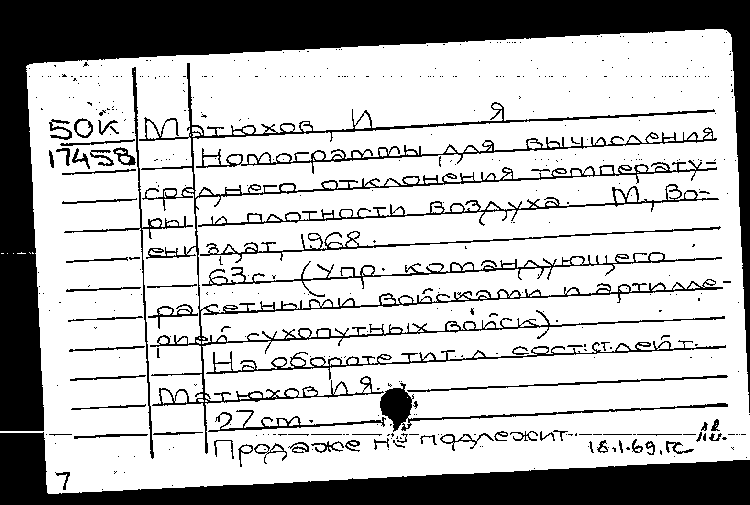 50К Матюхов, И Я
17458 Номограммы для вычисления
среднего отклонения температу-
ры и плотности воздуха. М., Во-
ениздат, 1968.
63с. (Упр. командующего
ракетными войсками и артилле-
рией сухопутных войск).
На обороте тит. л. сост: ст. лейт.
Матюхов И.Я.
27 см.
Продаже не подлежит.
18.1.69, ГС
7